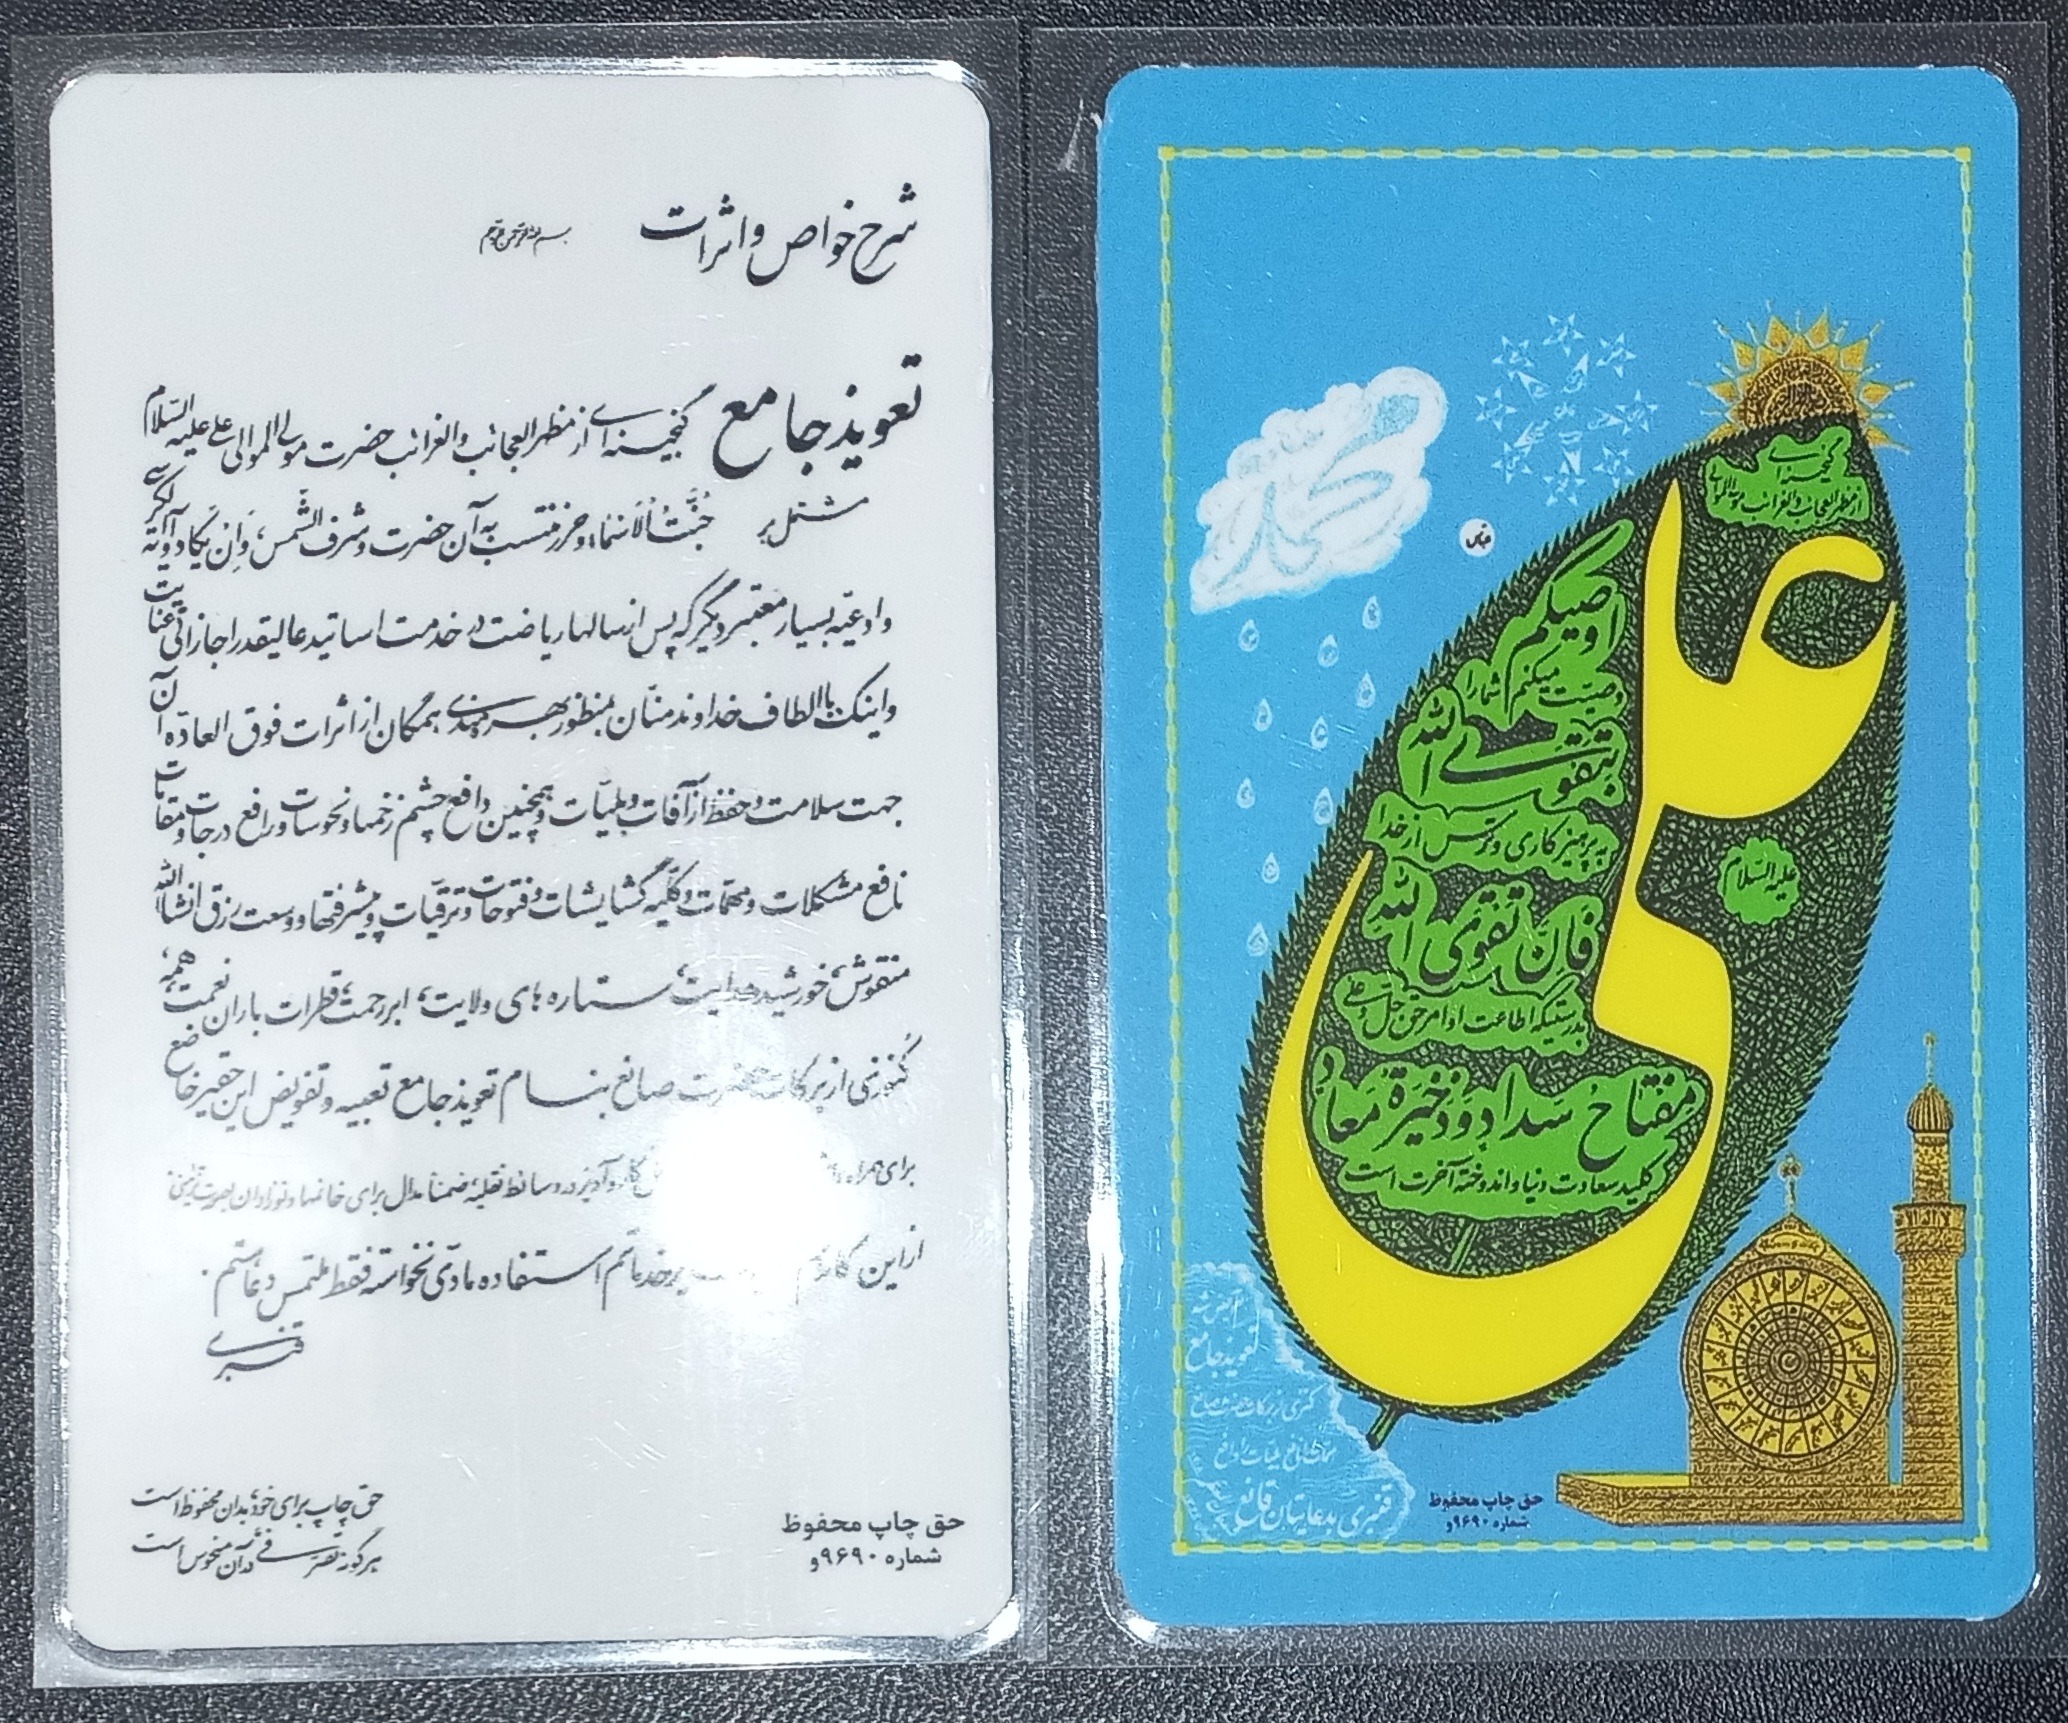 شرح خواص و اثرات
بسم الله الرحمن الرحیم
تعویذ جامع گنجینه‌ای از مظهر العجائب و الغرائب حضرت مولی الموالی علی علیه السلام
مشتمل بر جُنَّتُ الاَسْماء و حرز منتسب به آن حضرت و شرف الشمس، وَاِنْ یَکاد و آیة الکرسی
و ادعیّه بسیار معتبر دیگر که پس از سالها ریاضت در خدمت اساتید عالیقدر اجازاتی عنایت
و اینک با الطاف خداوند منّان بمنظور بهره‌مندی همگان از اثرات فوق العادّه آن
جهت سلامت و حفظ از آفات و بلیّات و همچنین دافع چشم زخمها و نحوسات و رافع درجات و مقامات
نافع مشکلات و مهمّات و کلّیه گشایشات و فتوحات و ترقیّات و پیشرفتها و وسعت رزق انشاءالله
منقوش، خورشید هدایت، ستاره های ولایت، ابر رحمت، قطرات باران نعمت، همه
کُنوزی از برکات حضرت صانع بنام تعویذ جامع تعبیه و تفویض این حقیر خاضع
برای همراه و آویز در وسائط نقلیه ضمناً مدال برای خانمها و نوزادان بصورت تزئینی
از این کار استفاده مادّی نخواسته فقط ملتمس دعا هستم.
قنبری
حق چاپ برای خودِ بدان محفوظ است
هرگونه تصرّفی در آن منحوس است
حق چاپ محفوظ
شماره ۹۶۹۰و
محمد
عباس
گنجینه‌ای
از مظهر العجائب و الغرائب مولی الموالی
علی
علیه السلام
اوصیکم
وصیّت میکنم شما را
بتقوی الله
به پرهیزکاری و ترس از خدا
فاِنّ تقوی الله
بدرستیکه اطاعت اوامر حق جلّ و علی
مفتاحُ سَدادٍ وَ ذخیرَةُ مَعادٍ
کلید سعادت دنیا و اندوخته آخرت است
تعویذ جامع
کنزی از برکات حضرت صانع
قنبری بدعایتان قانع
حق چاپ محفوظ
شماره ۹۶۹۰و